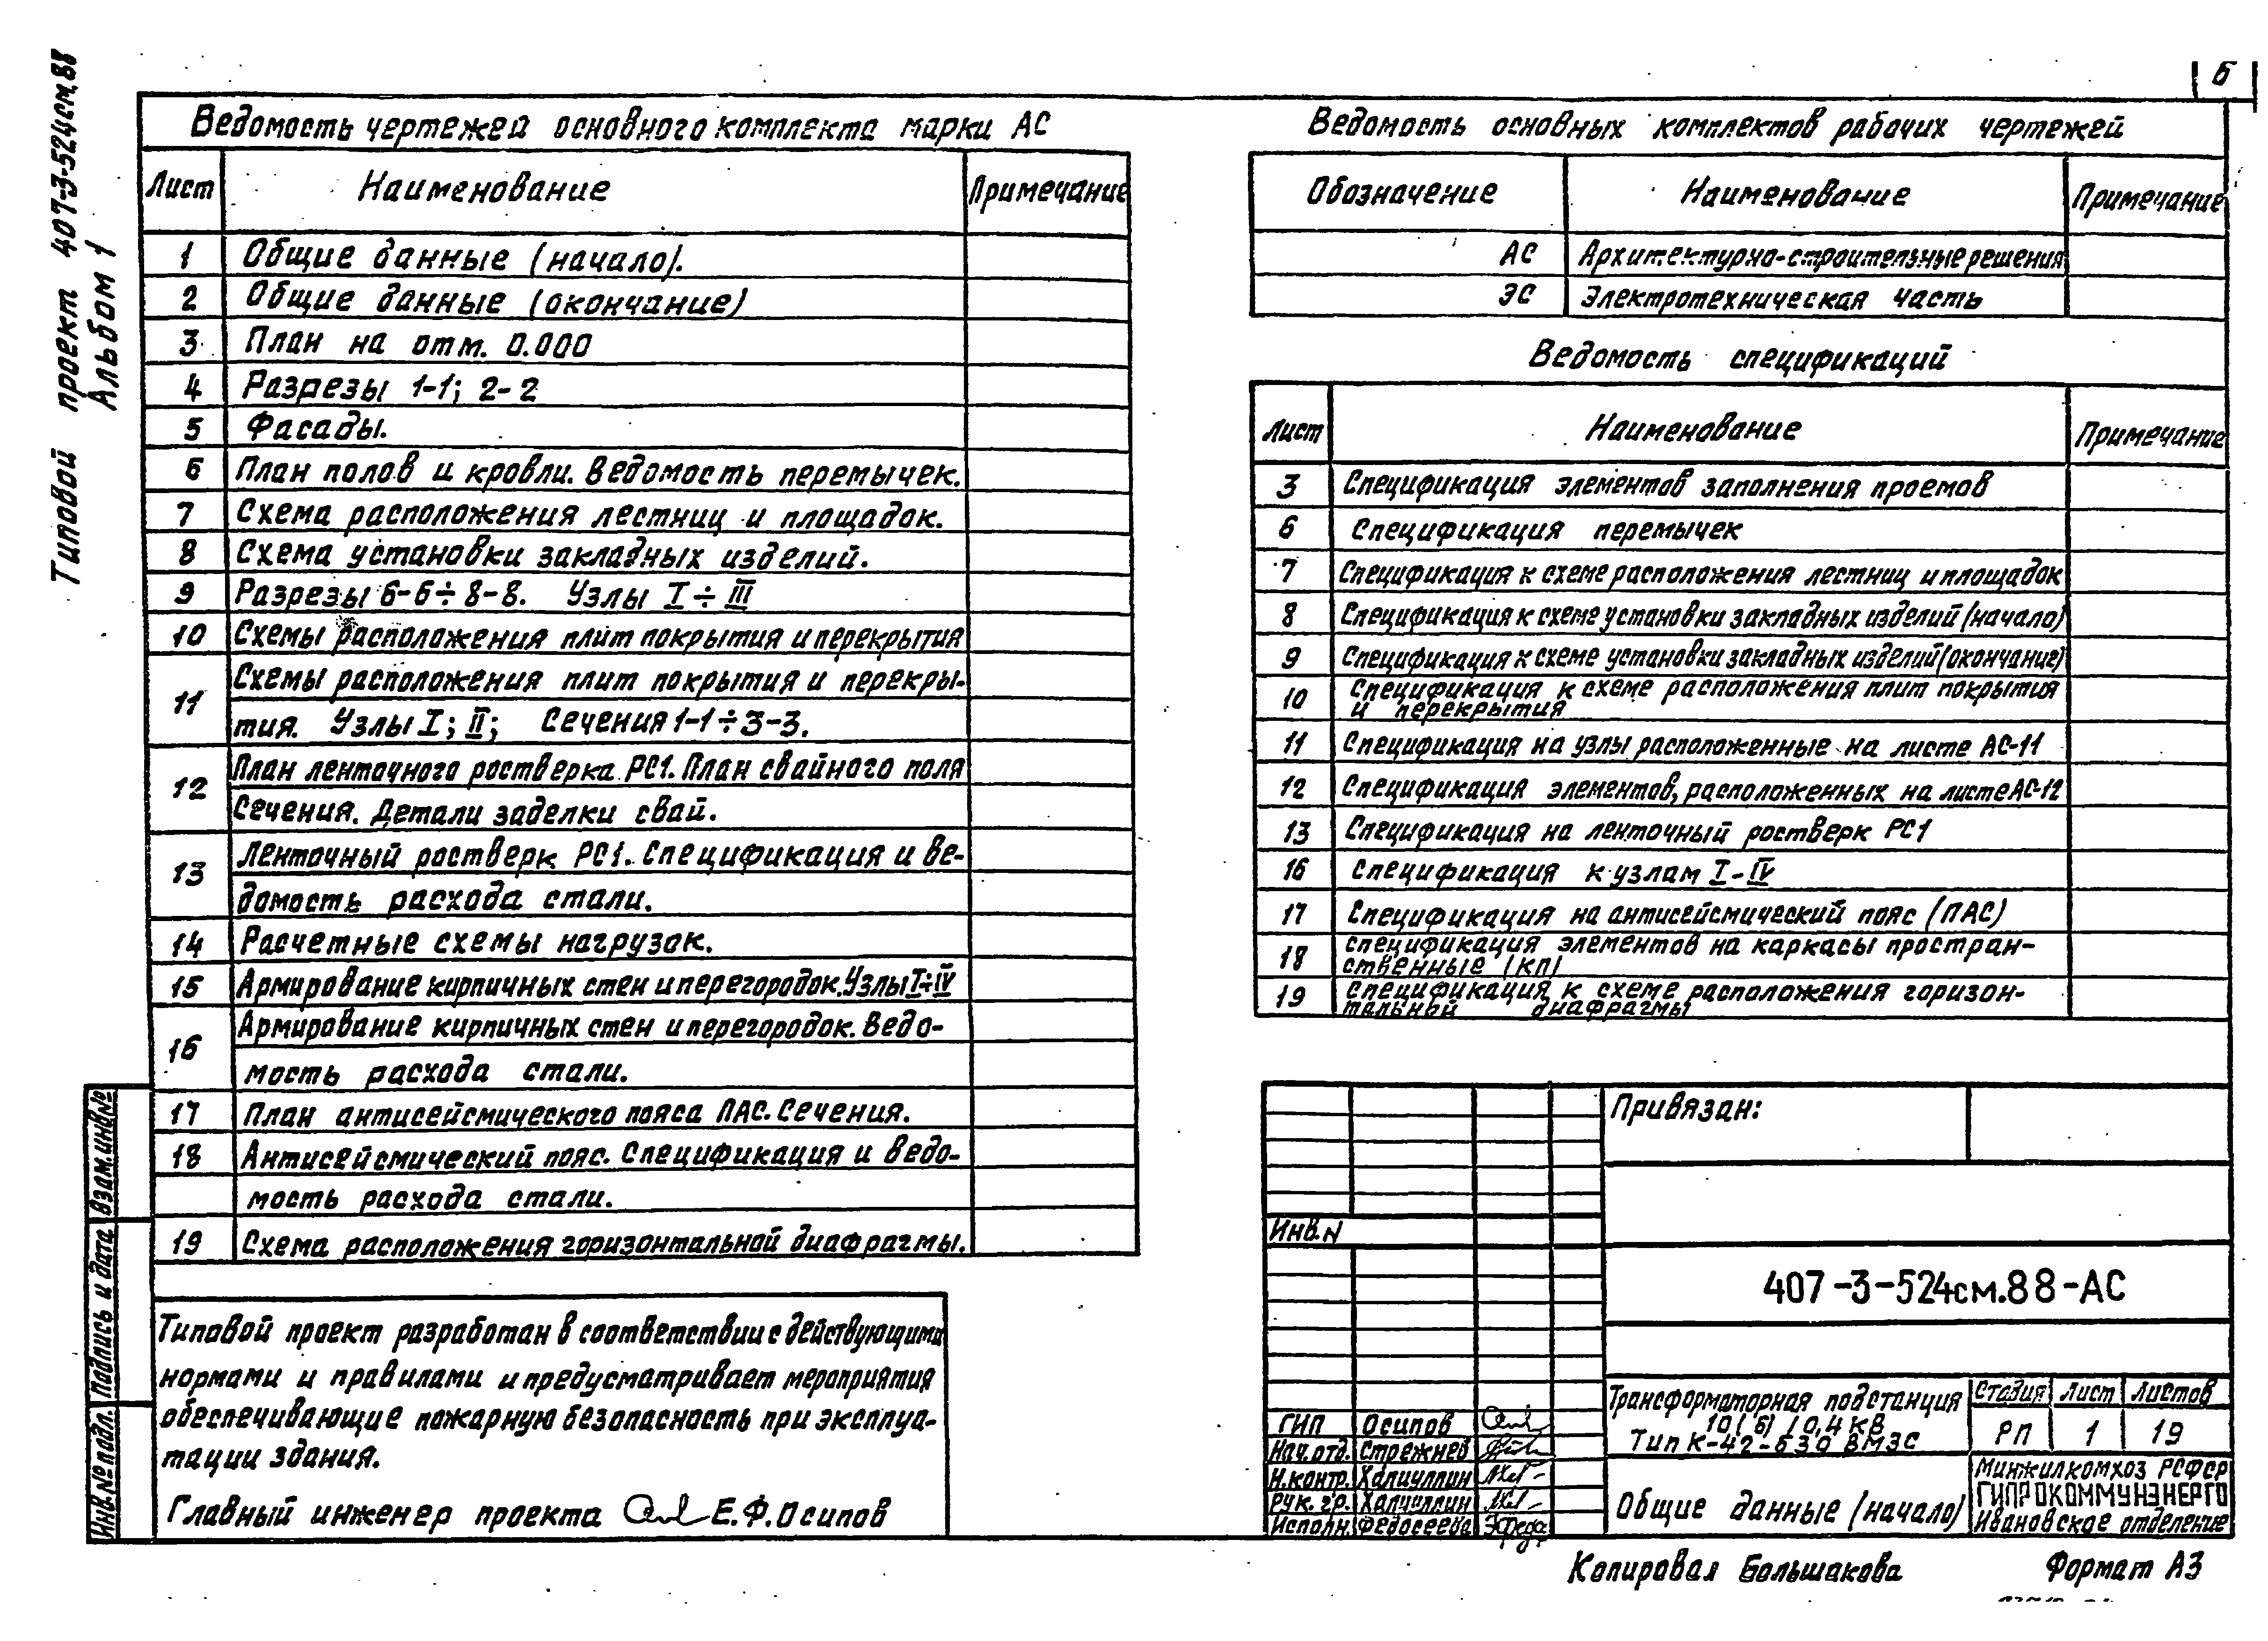 Типовой проект 407-3-524см.88
Альбом 1
6
Ведомость чертежей основного комплекта марки АС
Лист Наименование Примечание
1 Общие данные (начало).
2 Общие данные (окончание)
3 План на отм. 0.000
4 Разрезы 1-1; 2-2
5 Фасады.
6 План полов и кровли. Ведомость перемычек.
7 Схема расположения лестниц и площадок.
8 Схема установки закладных изделий.
9 Разрезы 6-6÷8-8. Узлы I÷III
10 Схемы расположения плит покрытия и перекрытия
11 Схемы расположения плит покрытия и перекры-
тия. Узлы I; II; Сечения 1-1÷3-3.
12 План ленточного ростверка РС1. План свайного поля
Сечения. Детали заделки свай.
13 Ленточный ростверк РС1. Спецификация и ве-
домость расхода стали.
14 Расчетные схемы нагрузок.
15 Армирование кирпичных стен и перегородок. Узлы I÷IV
16 Армирование кирпичных стен и перегородок. Ведо-
мость расхода стали.
17 План антисейсмического пояса ПАС. Сечения.
18 Антисейсмический пояс. Спецификация и ведо-
мость расхода стали.
19 Схема расположения горизонтальной диафрагмы.
Типовой проект разработан в соответствии с действующими
нормами и правилами и предусматривает мероприятия
обеспечивающие пожарную безопасность при эксплуа-
тации здания.
Главный инженер проекта Е.Ф.Осипов
Взам.инв№
Подпись и дата
Инв.№ подл.
Ведомость основных комплектов рабочих чертежей
Обозначение Наименование Примечание
АС Архитектурно-строительные решения
ЭС Электротехническая часть
Ведомость спецификаций
Лист Наименование Примечание
3 Спецификация элементов заполнения проемов
6 Спецификация перемычек
7 Спецификация к схеме расположения лестниц и площадок
8 Спецификация к схеме установки закладных изделий (начало)
9 Спецификация к схеме установки закладных изделий (окончание)
10 Спецификация к схеме расположения плит покрытия
и перекрытия
11 Спецификация на узлы расположенные на листе АС-11
12 Спецификация элементов, расположенных на листе АС-12
13 Спецификация на ленточный ростверк РС1
16 Спецификация к узлам I-IV
17 Спецификация на антисейсмический пояс (ПАС)
18 спецификация элементов на каркасы простран-
ственные (КП)
19 спецификация к схеме расположения горизон-
тальной диафрагмы
Привязан:
Инв.N
407-3-524см.88-АС
Трансформаторная подстанция
10(6)/0,4 кВ
Тип К-42-630 ВМЗС
Стадия Лист Листов
РП 1 19
ГИП Осипов
Нач.отд. Стрежнев
Н.контр. Халиуллин
Рук.гр. Халиуллин
Исполн. Федосеева
Общие данные (начало)
Минжилкомхоз РСФСР
ГИПРОКОММУНЭНЕРГО
Ивановское отделение
Копировал Большакова Формат А3